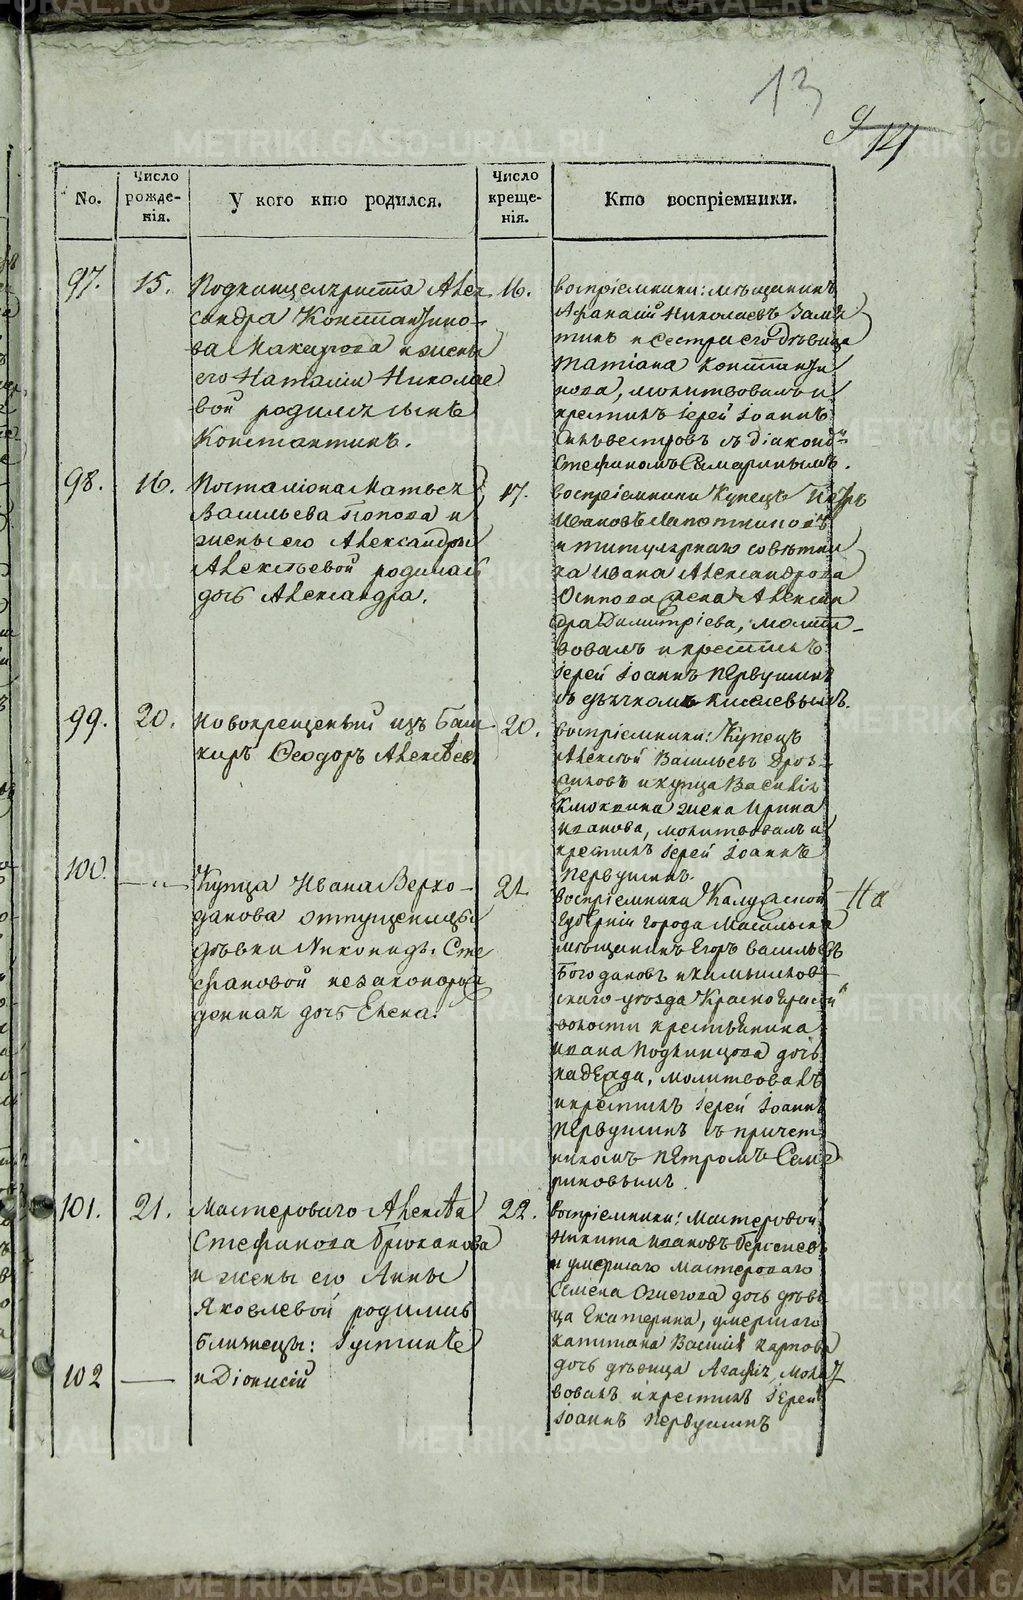 13
9
14
No.
Число рожде-нія.
У кого кто родился.
Число креще-нія.
Кто воспріемники.
97.
15.
Подканцеляриста Алек
сандра Константино-
ва Макарова и жены
его Наталіи Николае
вой родился сынъ
Константинъ.
16.
воспріемники: мѣщанинъ
Афанасій Николаевъ Замя
тинъ и сестра его дѣвица
Татіана Константи
нова, молитвовалъ и
крестилъ іерей Іоаннъ
Сильвестровъ съ діакон
Стефаномъ Самаринымъ.
98.
16.
Посталіона Матвея
Васильева Попова и
жены его Александры
Алексѣевой родилась
дочь Александра.
17.
воспріемники Купецъ Петръ
Ивановъ Лапотниковъ
и титулярнаго совѣтни
ка Ивана Александрова
Осипова жена Алексан
дра Димитріева, молит-
вовалъ и крестилъ
іерей Іоаннъ Первушинъ
съ дьячкомъ Киселевымъ.
99.
20.
Новокрещеный изъ Баш
киръ Ѳеодоръ Алексѣевъ
20.
воспріемники: Купецъ
Алексѣй Васильевъ Дроз-
никовъ и купца Василія
Клюкина жена Ирина
Иванова, молитвовалъ и
крестилъ іерей Іоаннъ
Первушинъ.
100.
— " —
Купца Ивана Верхо-
данова отпущеницы
дѣвки Никониды Сте
фановой незаконорож
денная дочь Елена.
21.
воспріемники Калужской
Губерніи города Масальска
мѣщанинъ Егоръ Васильевъ
Богодановъ и камышлов-
скаго уѣзда Красноярской
волости крестьянина
Ивана Подкинцова дочь
Надежда, молитвовалъ
и крестилъ іерей Іоаннъ
Первушинъ съ причет
никомъ Петромъ Семе
риковымъ.
На
101.
21.
Мастероваго Алексѣя
Стефанова Брюханова
и жены его Анны
Яковлевой родились
Близнецы: Іустинъ
22.
воспріемники: Мастеровой
Никита Ивановъ
и умершаго мастероваго
Семена дочь дѣви
ца Екатерина, умершаго
капитана Василія Карпова
дочь дѣвица Агафія, молит
вовалъ и крестилъ іерей
Іоаннъ Первушинъ
102
—
и Діонисій
METRIKI.GASO-URAL.RU